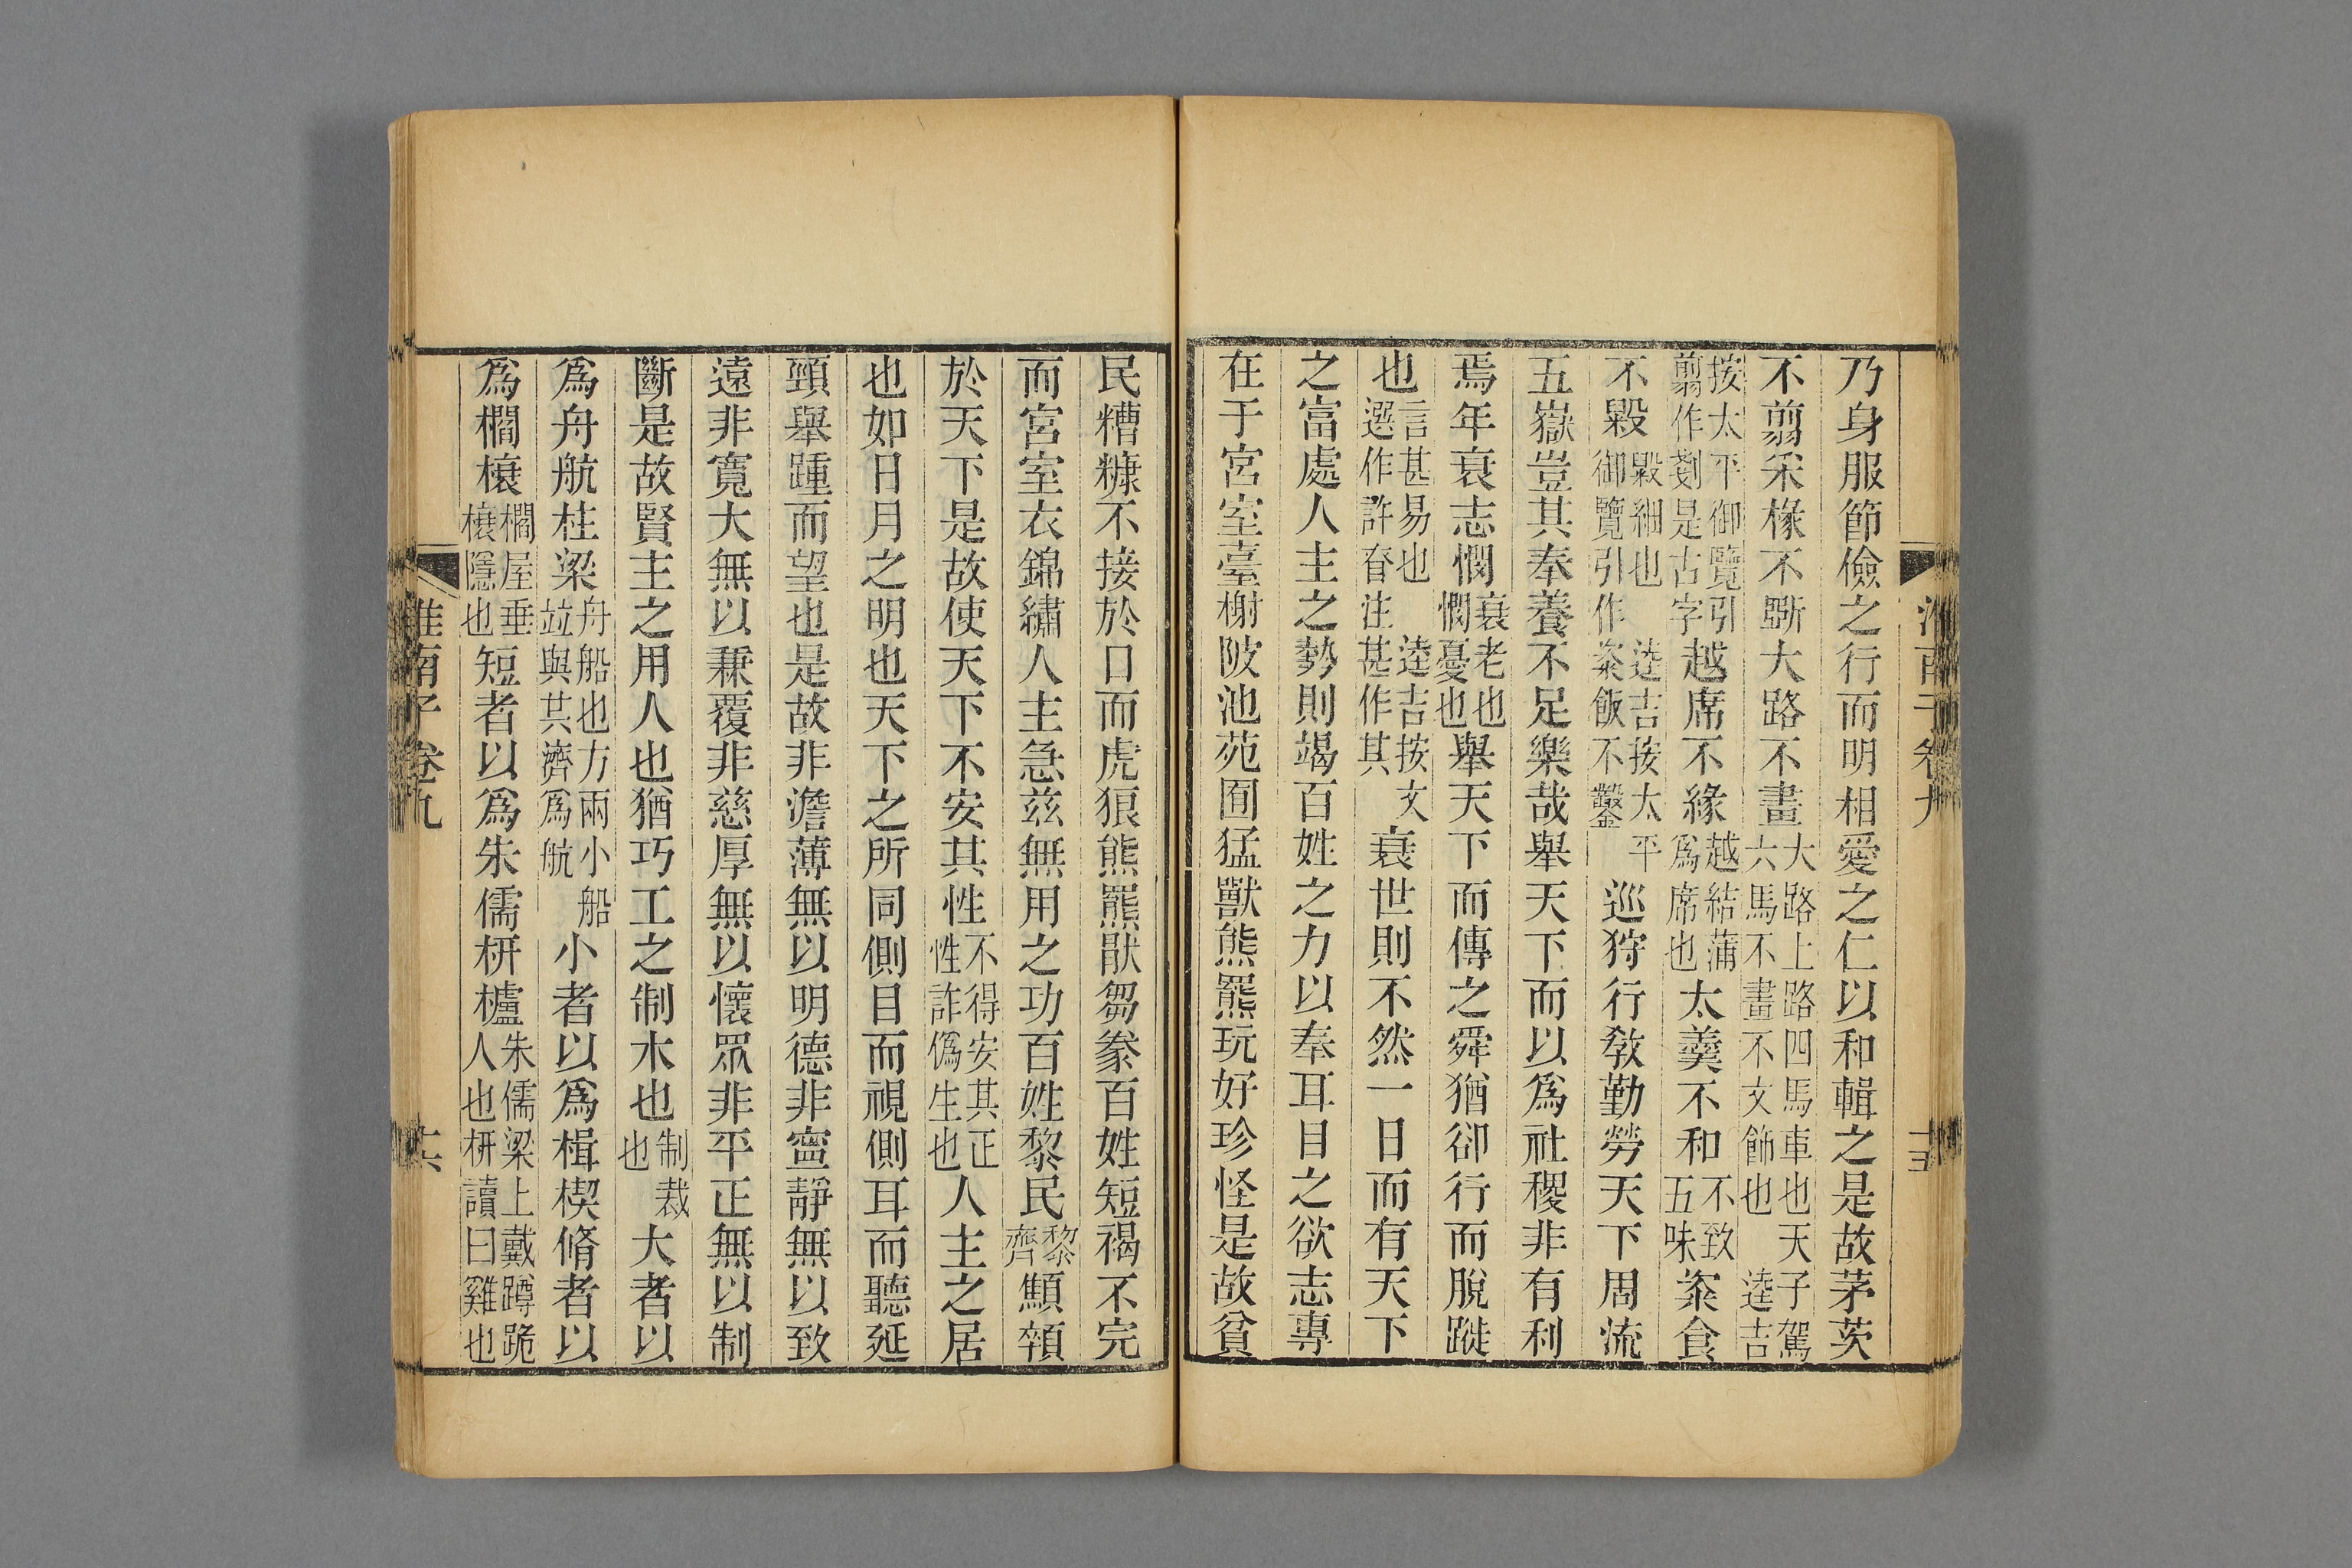 乃身服節儉之行而明相愛之仁以和輯之是故茅茨
不翦采椽不斲大路不畫大路上路四馬車也天子駕六馬不畫不文飾也逵吉
按太平御覽引翦作剗是古字越席不緣越結蒲爲席也太羹不和不致五味粢食
不毇毇細也逵吉按太平御覽引作粢飯不鑿巡狩行敎勤勞天下周流
五嶽豈其奉養不足樂哉舉天下而以爲社稷非有利
焉年衰志憫衰老也憫憂也舉天下而傳之舜猶卻行而脫蹝
也言甚易也逵吉按文選作許眘注甚作其衰世則不然一日而有天下
之富處人主之勢則竭百姓之力以奉耳目之欲志專
在于宮室臺榭陂池苑囿猛獸熊羆玩好珍怪是故貧
民糟糠不接於口而虎狼熊羆猒芻豢百姓短褐不完
而宮室衣錦繡人主急茲無用之功百姓黎民黎齊顦顇
於天下是故使天下不安其性不得安其正性詐僞生也人主之居
也如日月之明也天下之所同側目而視側耳而聽延
頸舉踵而望也是故非澹薄無以明德非寍靜無以致
遠非寬大無以兼覆非慈厚無以懷眾非平正無以制
斷是故賢主之用人也猶巧工之制木也制裁也大者以
爲舟航柱梁舟船也方兩小船竝與共濟爲航小者以爲楫楔脩者以
爲櫩榱櫩屋垂榱隱也短者以爲朱儒枅櫨朱儒梁上戴蹲跪人也枅讀曰雞也
淮南子卷九
十五
淮南子卷九
十六